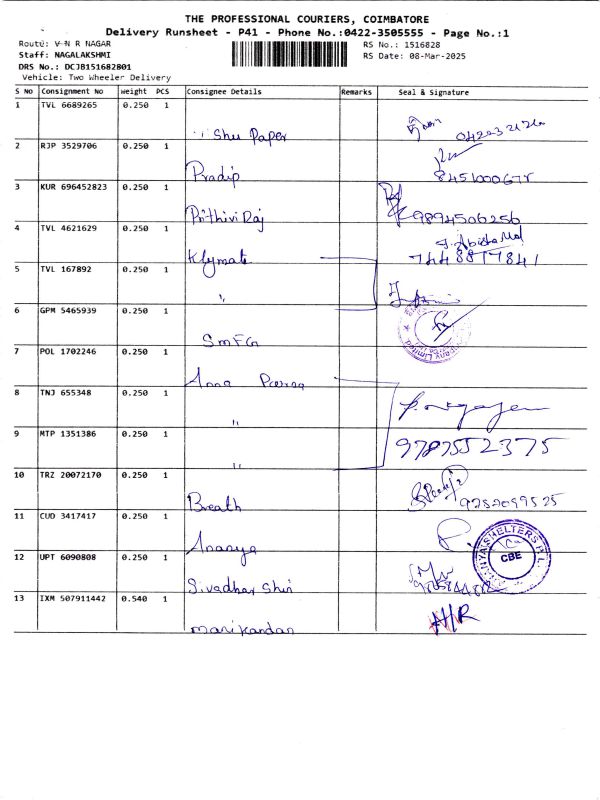 THE PROFESSIONAL COURIERS, COIMBATORE
Delivery Runsheet - P41 - Phone No.:0422-3505555 - Page No.:1
Route: V N R NAGAR
RS No.: 1516828
Staff: NAGALAKSHMI
RS Date: 08-Mar-2025
DRS No.: DCJB151682801
Vehicle: Two Wheeler Delivery
S NO Consignment No Weight PCS Consignee Details Remarks Seal & Signature
1 TVL 6689265 0.250 1 Shu Paper
2 RJP 3529706 0.250 1 Pradip
3 KUR 696452823 0.250 1 Prithivi Raj 9894506256
4 TVL 4621629 0.250 1 Klymate 7448817841
5 TVL 167892 0.250 1 "
6 GPM 5465939 0.250 1 SMFG
7 POL 1702246 0.250 1 Anna
8 TNJ 655348 0.250 1 "
9 MTP 1351386 0.250 1 " 9787552375
10 TRZ 20072170 0.250 1 Breath
11 CUD 3417417 0.250 1 Ananya SHELTERS CBE
12 UPT 6090808 0.250 1
13 IXM 507911442 0.540 1 Manikandan N/R